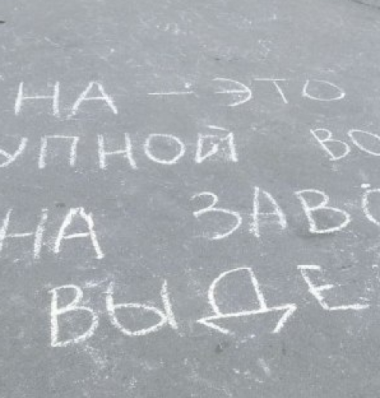 НА — ЭТО
УПНОЙ ВО
НА ЗАВО
ВЫДЕ